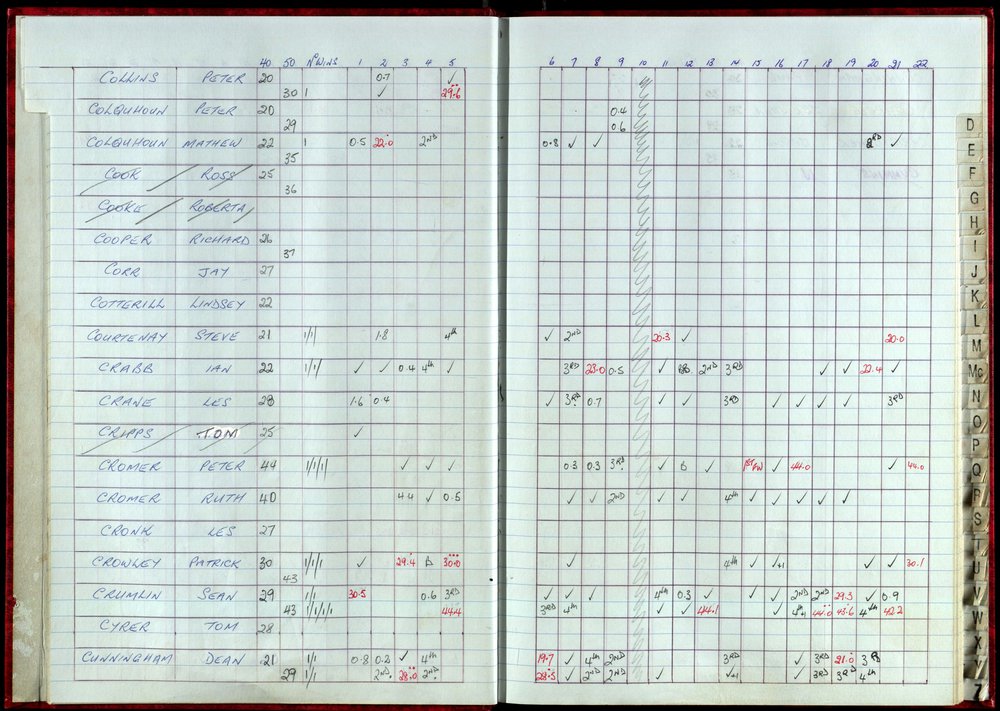 40 50 Nº WINS 1 2 3 4 5 6 7 8 9 10 11 12 13 14 15 16 17 18 19 20 21 22
COLLINS PETER 20 0.7 ✓
30 1 ✓ 29.6
COLQUHOUN PETER 20 0.4
29 0.6
COLQUHOUN MATHEW 22 1 0.5 22.0 2ND 0.8 ✓ ✓ RD ✓
35
COOK ROSS 25
36
COOKE ROBERTA
COOPER RICHARD 26
37
CORR JAY 27
COTTERILL LINDSEY 22
COURTENAY STEVE 21 1/1 1.8 4th ✓ 2ND 20.3 ✓ 20.0
CRABB IAN 22 1/1 ✓ ✓ 0.4 4th ✓ 3RD 23.0 0.5 ✓ 2ND 3RD ✓ ✓ 22.4 ✓
CRANE LES 28 1.6 0.4 ✓ 3RD 0.7 ✓ ✓ 3RD ✓ ✓ ✓ ✓ 3RD
CRIPPS TOM 25 ✓
CROMER PETER 44 1/1/1 ✓ ✓ ✓ 0.3 0.3 3RD ✓ ✓ ✓ 44.0 ✓ 44.0
CROMER RUTH 40 4.4 ✓ 0.5 ✓ ✓ 2ND ✓ ✓ 4th ✓ ✓ ✓ ✓ ✓
CRONK LES 27
CROWLEY PATRICK 30 1/1/1 ✓ 29.4 30.0 ✓ 4th ✓ ✓+1 ✓ ✓ 30.1
43
CRUMLIN SEAN 29 1/1 30.5 0.6 3RD ✓ ✓ ✓ 4th 0.3 ✓ ✓ ✓ 2ND 2ND 29.3 ✓ 0.9
43 1/1/1/1 44.4 3RD 4th ✓ ✓ 44.1 ✓ 44.0 43.6 4th 42.2
CYRER TOM 28
CUNNINGHAM DEAN 21 1/1 0.8 0.2 ✓ 4th 19.7 ✓ 4th 2ND 3RD ✓ 3RD 21.0 3RD
29 1/1 2ND 28.0 2ND 28.5 ✓ 2ND 2ND ✓ ✓+1 ✓ 3RD 3RD 4th
D
E
F
G
H
I
J
K
L
M
Mc
N
O
P
Q
R
S
T
U
V
W
X
Y
Z